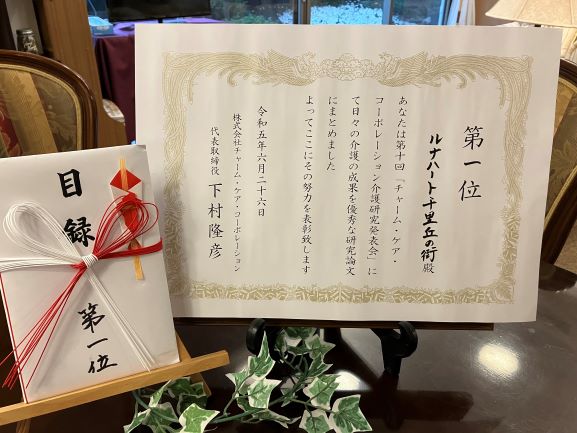 第一位
ルナハート千里丘の街殿
あなたは第十回「チャーム・ケア・
コーポレーション介護研究発表会」に
て日々の介護の成果を優秀な研究論文
にまとめました
よってここにその努力を表彰致します
令和五年六月二十六日
株式会社チャーム・ケア・コーポレーション
代表取締役 下村隆彦
目録
第一位